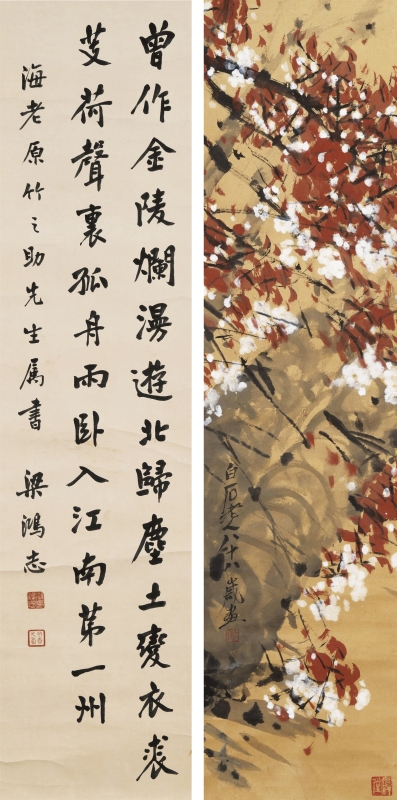 曾作金陵爛漫遊北歸塵土變衣裘
芰荷聲裏孤舟雨卧入江南第一州
海老原竹之助先生属書 梁鴻志
白石老人八十八歲畫